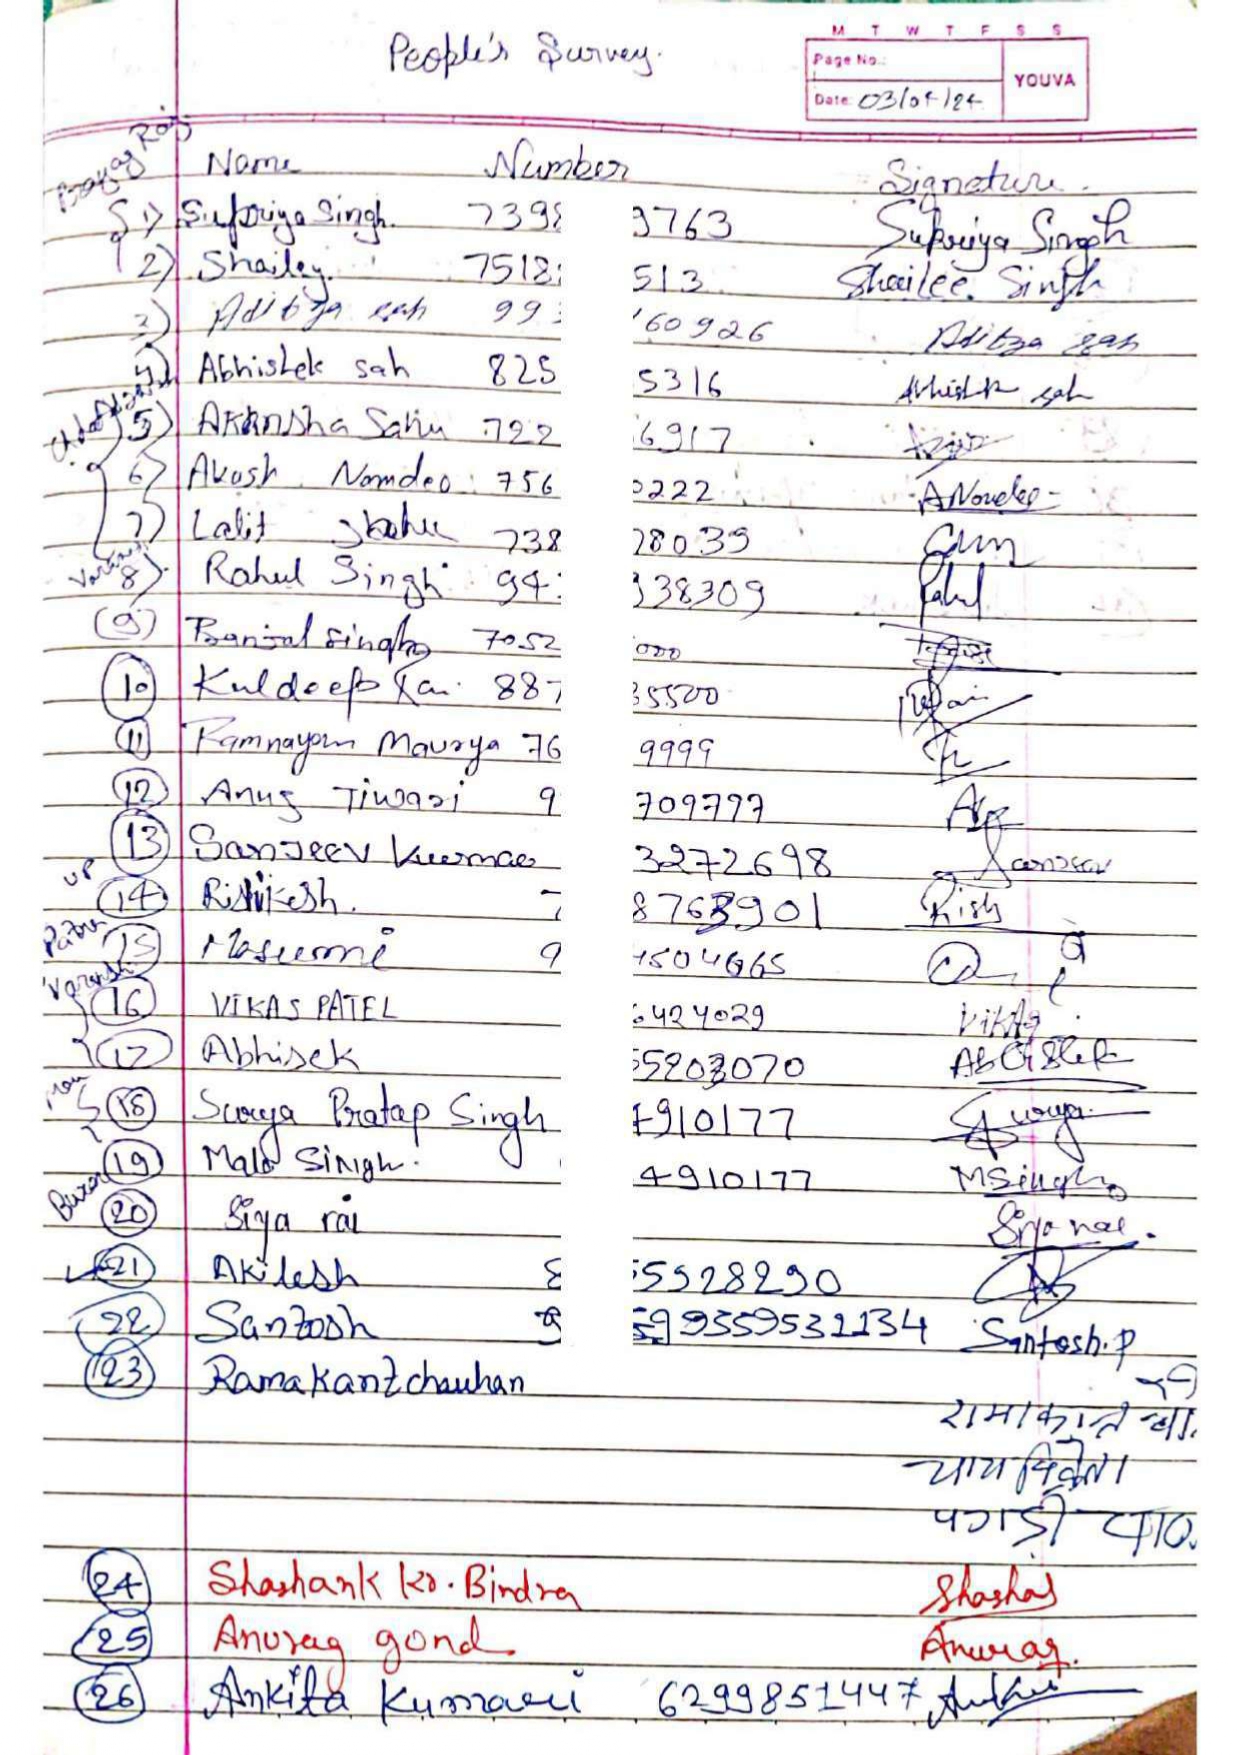 M T W T F S S
People's Survey.
Page No.:
YOUVA
Date: 03/04/24
Prayag Raj
Name Number Signature.
1) Supriya Singh. 739 9763 Supriya Singh
2) Shailey. 7518 513 Shailee. Singh
3) Aditya sah 99 60926 Aditya sah
4) Abhishek sah 825 5316 Abhishek sah
5) AKAnsha Sahu 722 6917
6) Akash Namdeo 756 0222 ANamdeo
7) Lalit Sahu 738 28039
8) Rahul Singh 94 938309 Rahul
(9) Pranjal Singh 7052 000
10 Kuldeep Rai 887 35500 Rai
11 Ramnayan Maurya 76 9999
12 Anuj Tiwari 9 709797
13 Sanjeev Kumar 3272698 Sanjeev
UP
14 Rishikesh. 7 8763901 Rish
Patna
15 Masumi 9 504665
Varansi
16 VIKAS PATEL 6424029 Vikas
17 Abhisek 55203070 Abhishek
Mau
18 Surya Pratap Singh 4910177 Surya
19 Mala Singh. 4910177 MSingh
Buxar
20 Siya rai Siya rai.
21 Akilesh 8 55928290
22 Santosh 9 599359532134 Santosh.P
23 Ramakant chauhan
रामाकान्त चौ.
चाय विक्रेता
24 Shashank kr. Bindra Shashank
25 Anurag gond Anurag.
26 Ankita Kumari 6299851447